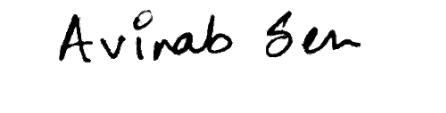 Avinab Sen